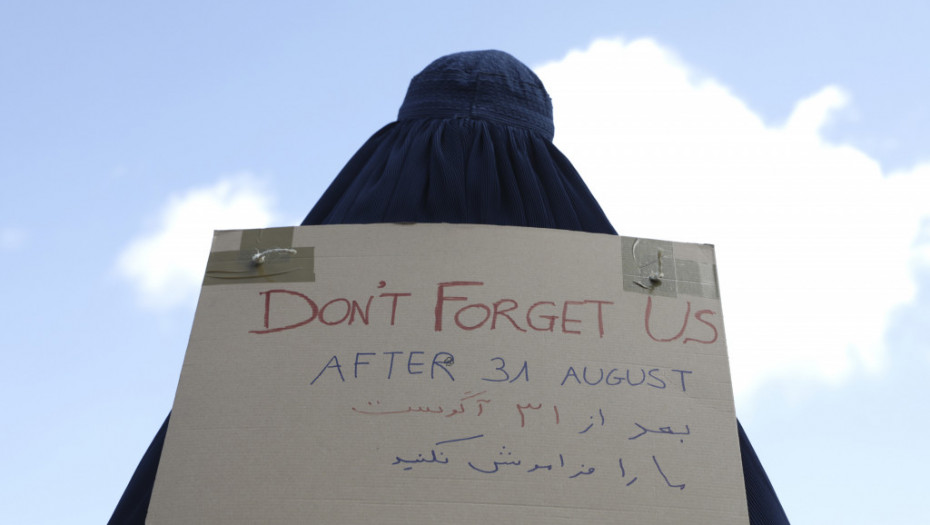 DON'T FORGET US
AFTER 31 AUGUST
بعد از ۳۱ آگوست
ما را فراموش نکنید